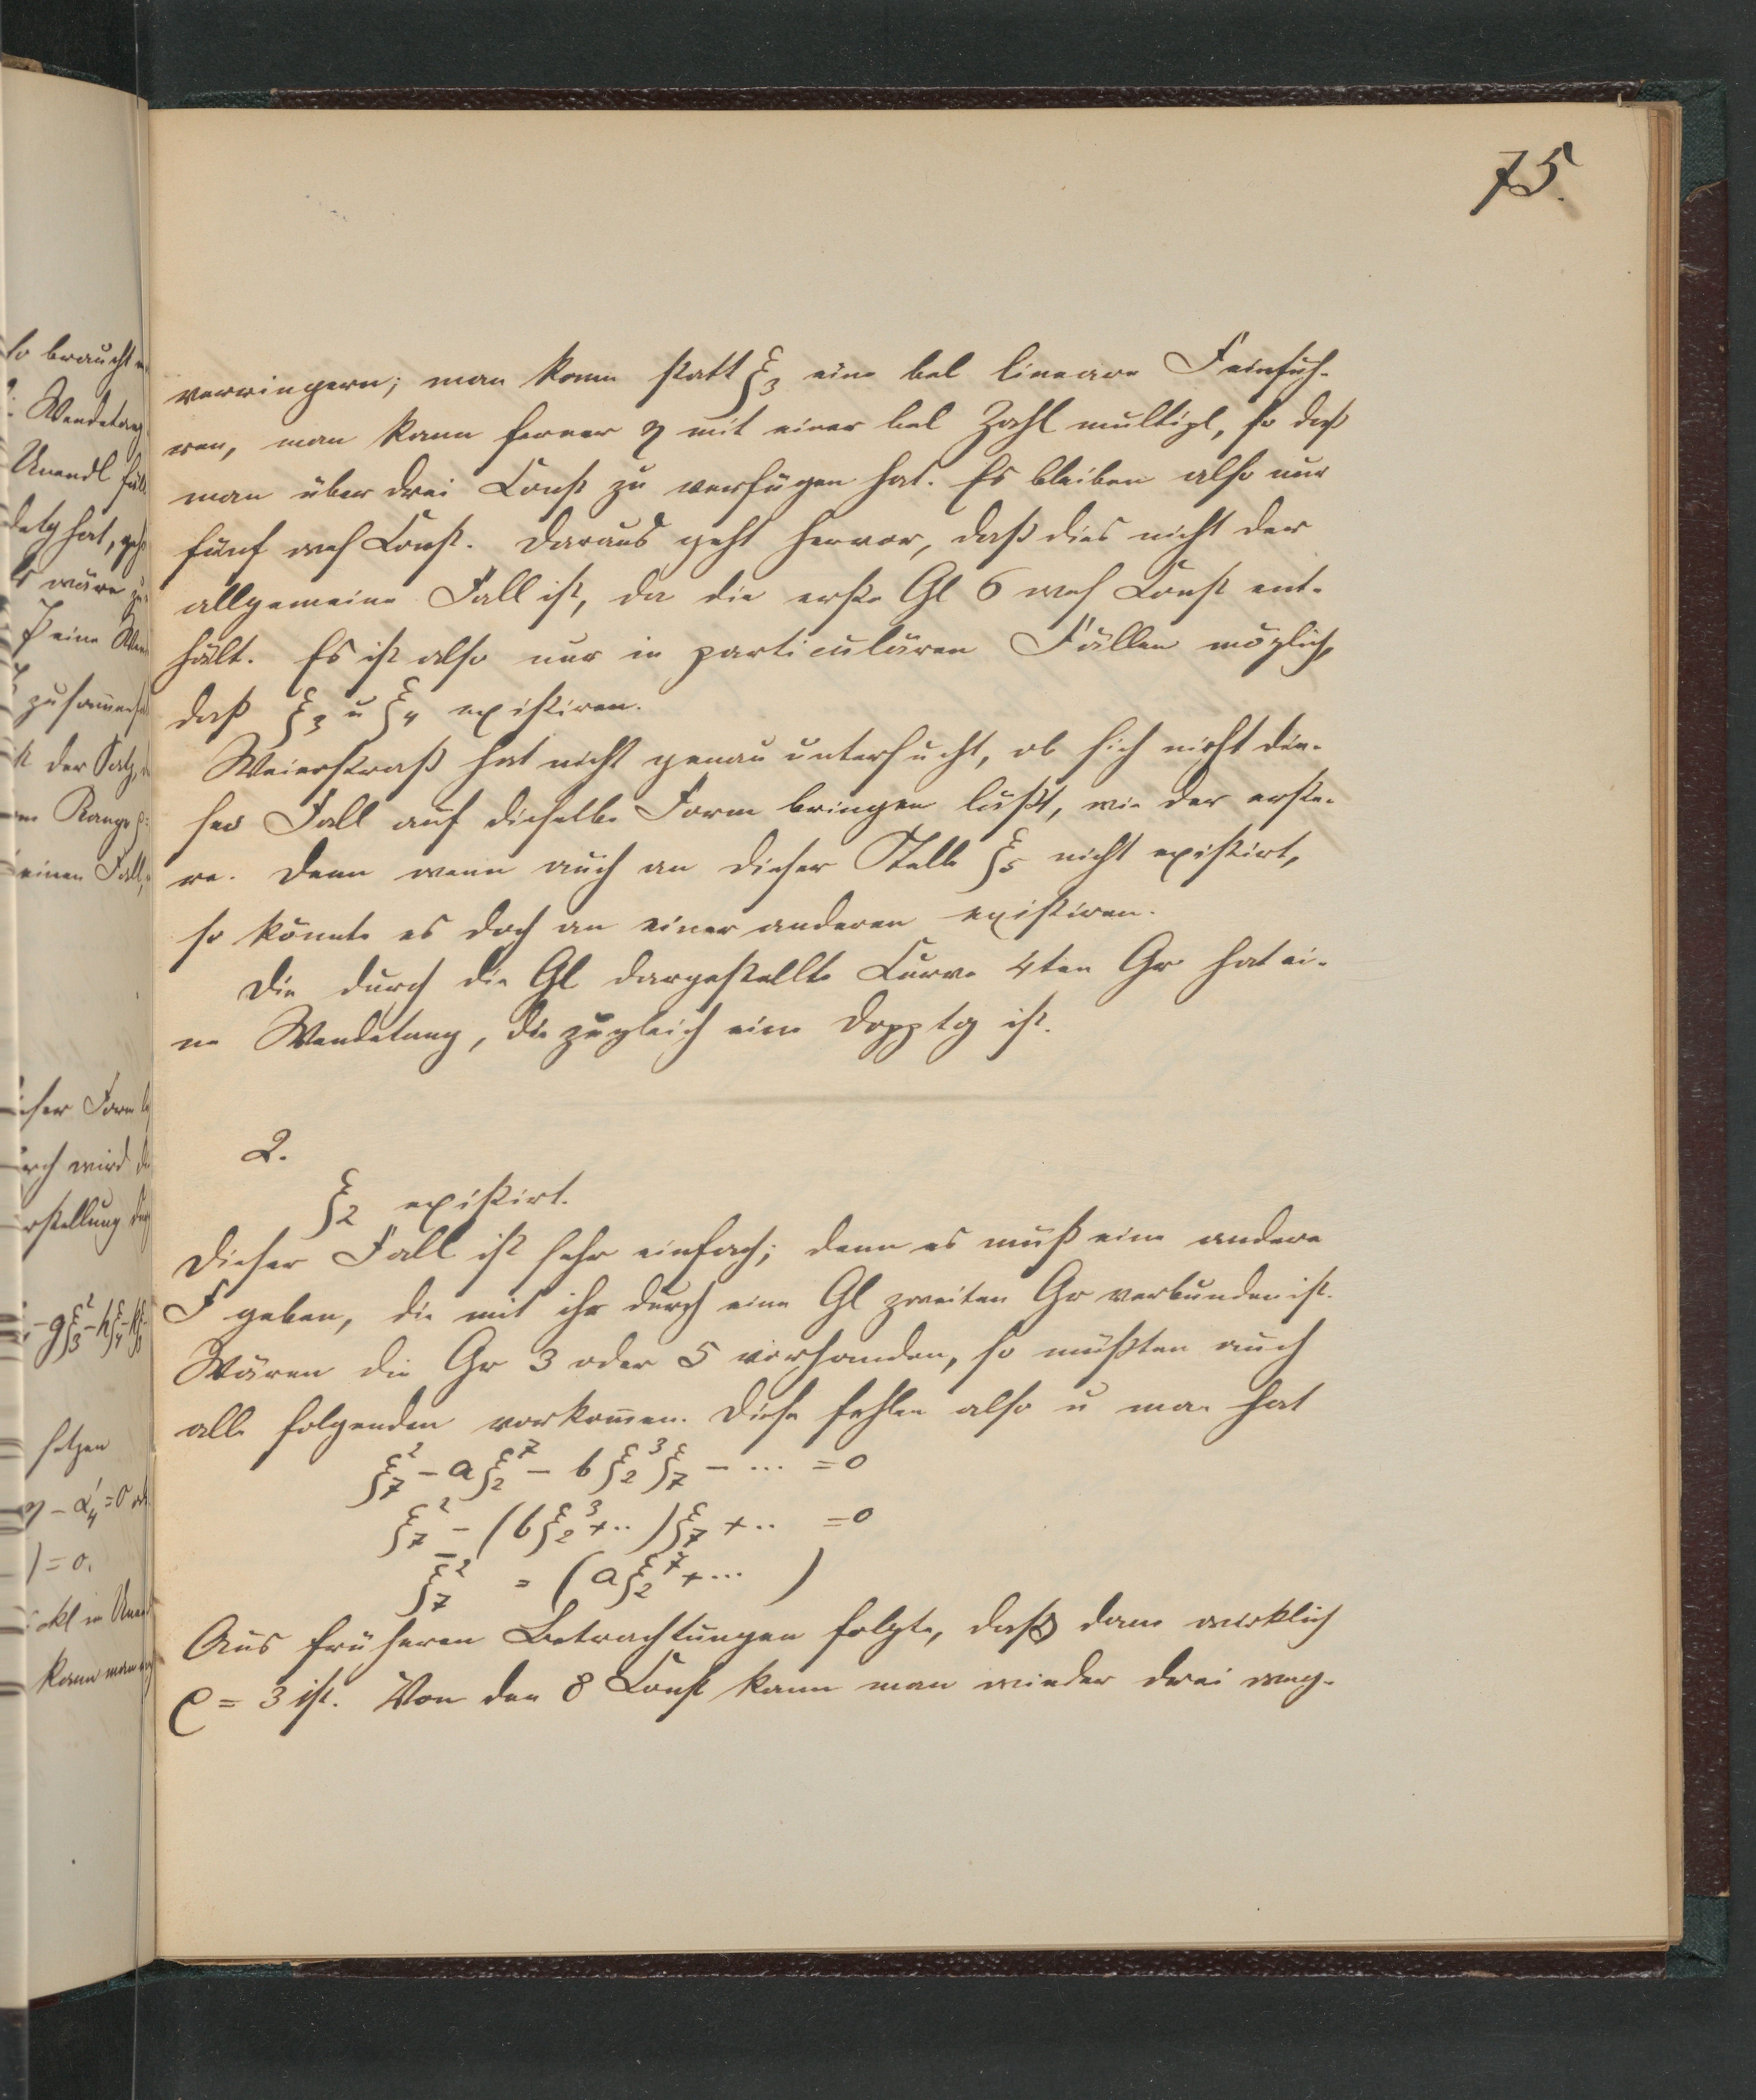 75.
verringern; man kann statt ξ₃ eine bel lineare F einfüh-
ren, man kann ferner η mit einer bel Zahl multipl, so daß
man über drei Const zu verfügen hat. Es bleiben also nur
fünf wes Const. Daraus geht hervor, daß dies nicht der
allgemeine Fall ist, da die erste Gl 6 wes Const ent-
hält. Es ist also nur in particulären Fällen möglich,
daß ξ₃ u ξ₄ existiren.
Weierstraß hat nicht genau untersucht, ob sich nicht die-
ser Fall auf dieselbe Form bringen läßt, wie der erste-
re. Denn wenn auch an dieser Stelle ξ₅ nicht existirt,
so könnte es doch an einer anderen existiren.
Die durch die Gl dargestellte Curve 4ten Gr hat ei-
ne Wendetang, die zugleich eine Dopptg ist.
2.
ξ₂ existirt.
Dieser Fall ist sehr einfach; denn es muß eine andere
F geben, die mit ihr durch eine Gl zweiten Gr verbunden ist.
Wären die Gr 3 oder 5 vorhanden, so müßten auch
alle folgenden vorkommen. Diese fehlen also u man hat
ξ₇² − aξ₂⁷ − bξ₂³ξ₇ − ... = 0
ξ₇² − (bξ₂³ + ..)ξ₇ + .. = 0
ξ̄₇² = (aξ₂⁷ + ... )
Aus früheren Betrachtungen folgte, daß dann wirklich
ϱ = 3 ist. Von den 8 Const kann man wieder drei weg-